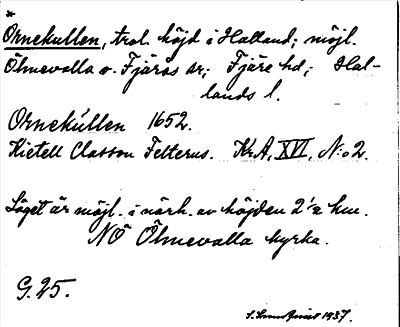 *
Ornekullen, trol. höjd i Halland; möjl.
Ölmevalla o. Fjärås sr; Fjäre hd; Hal-
lands l.
Ornekullen 1652.
Kietell Classon Felterus. KrA, XVI, N:o 2.
Läget är möjl. i närh. av höjden 2 1/2 km.
NÖ Ölmevalla kyrka.
G. 25.
1937.